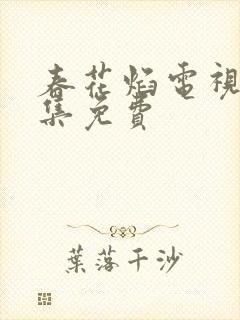 春花焰電視
集免費
葉落千沙